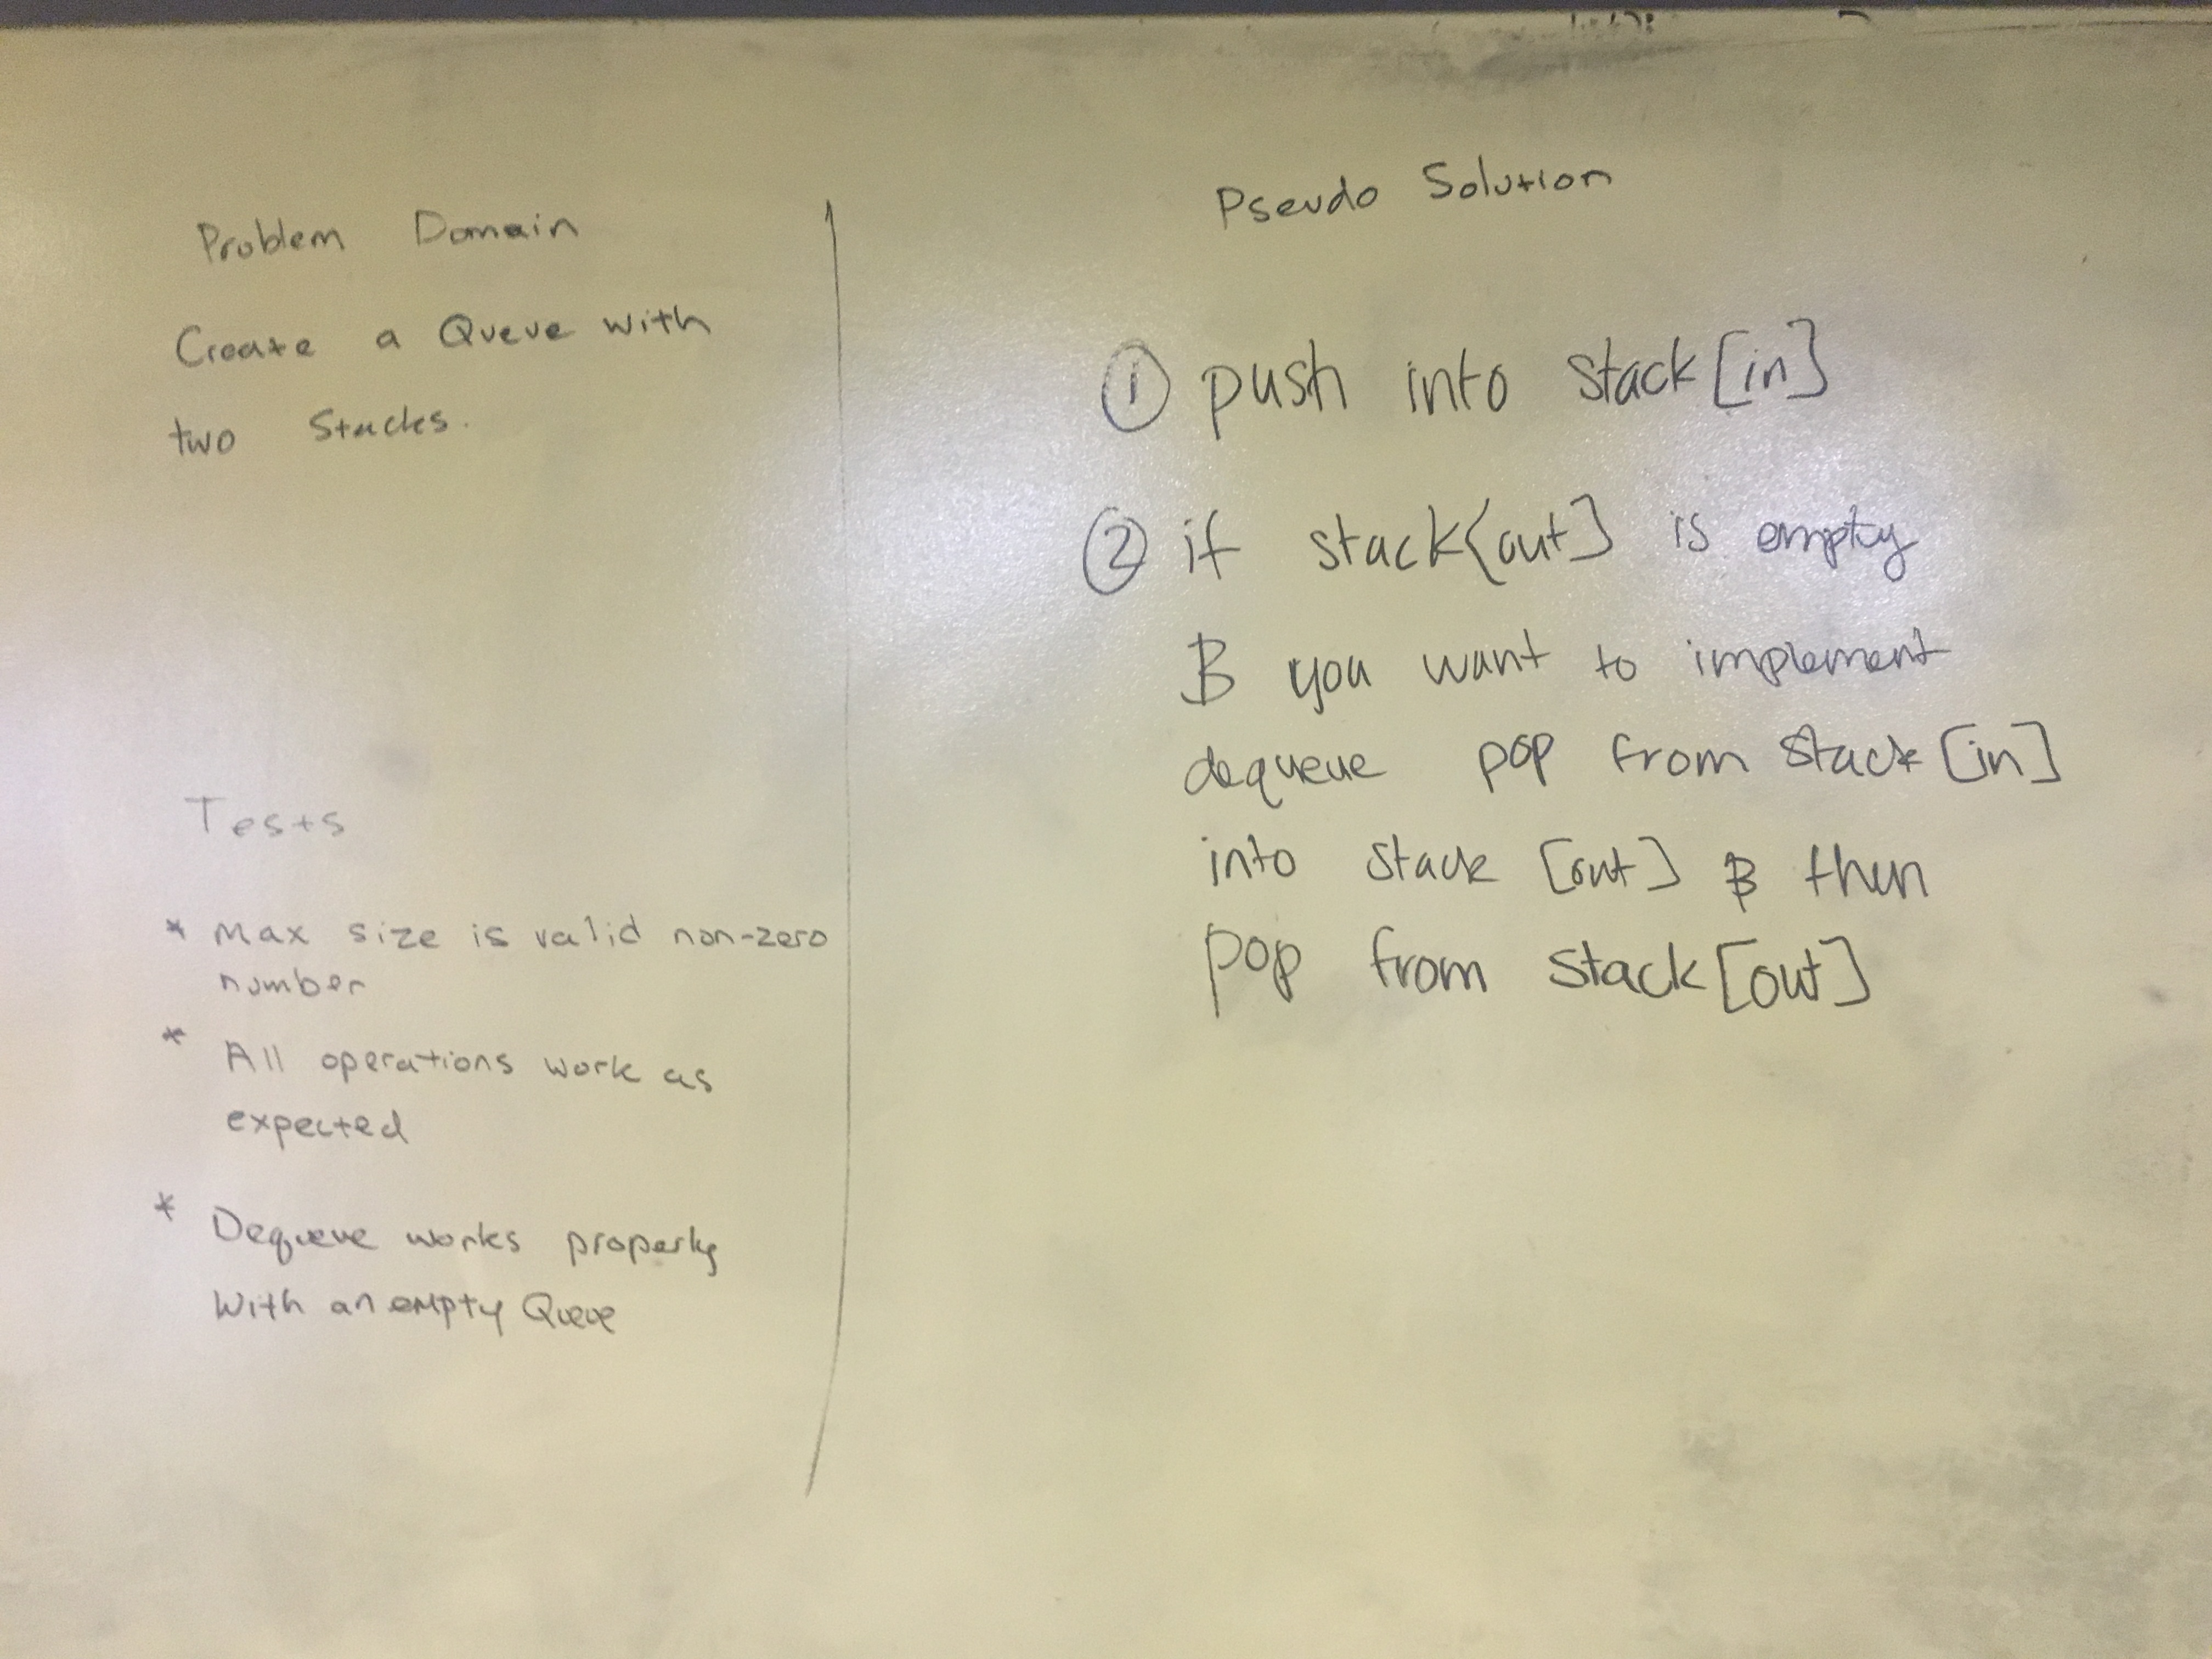 Problem Domain
Create a Queue with
two Stacks.
Tests
* Max size is valid non-zero
number
* All operations work as
expected
* Dequeue works properly
With an empty Queue
Pseudo Solution
① push into stack[in]
② if stack[out] is empty
& you want to implement
dequeue pop from stack[in]
into stack [out] & then
pop from stack[out]